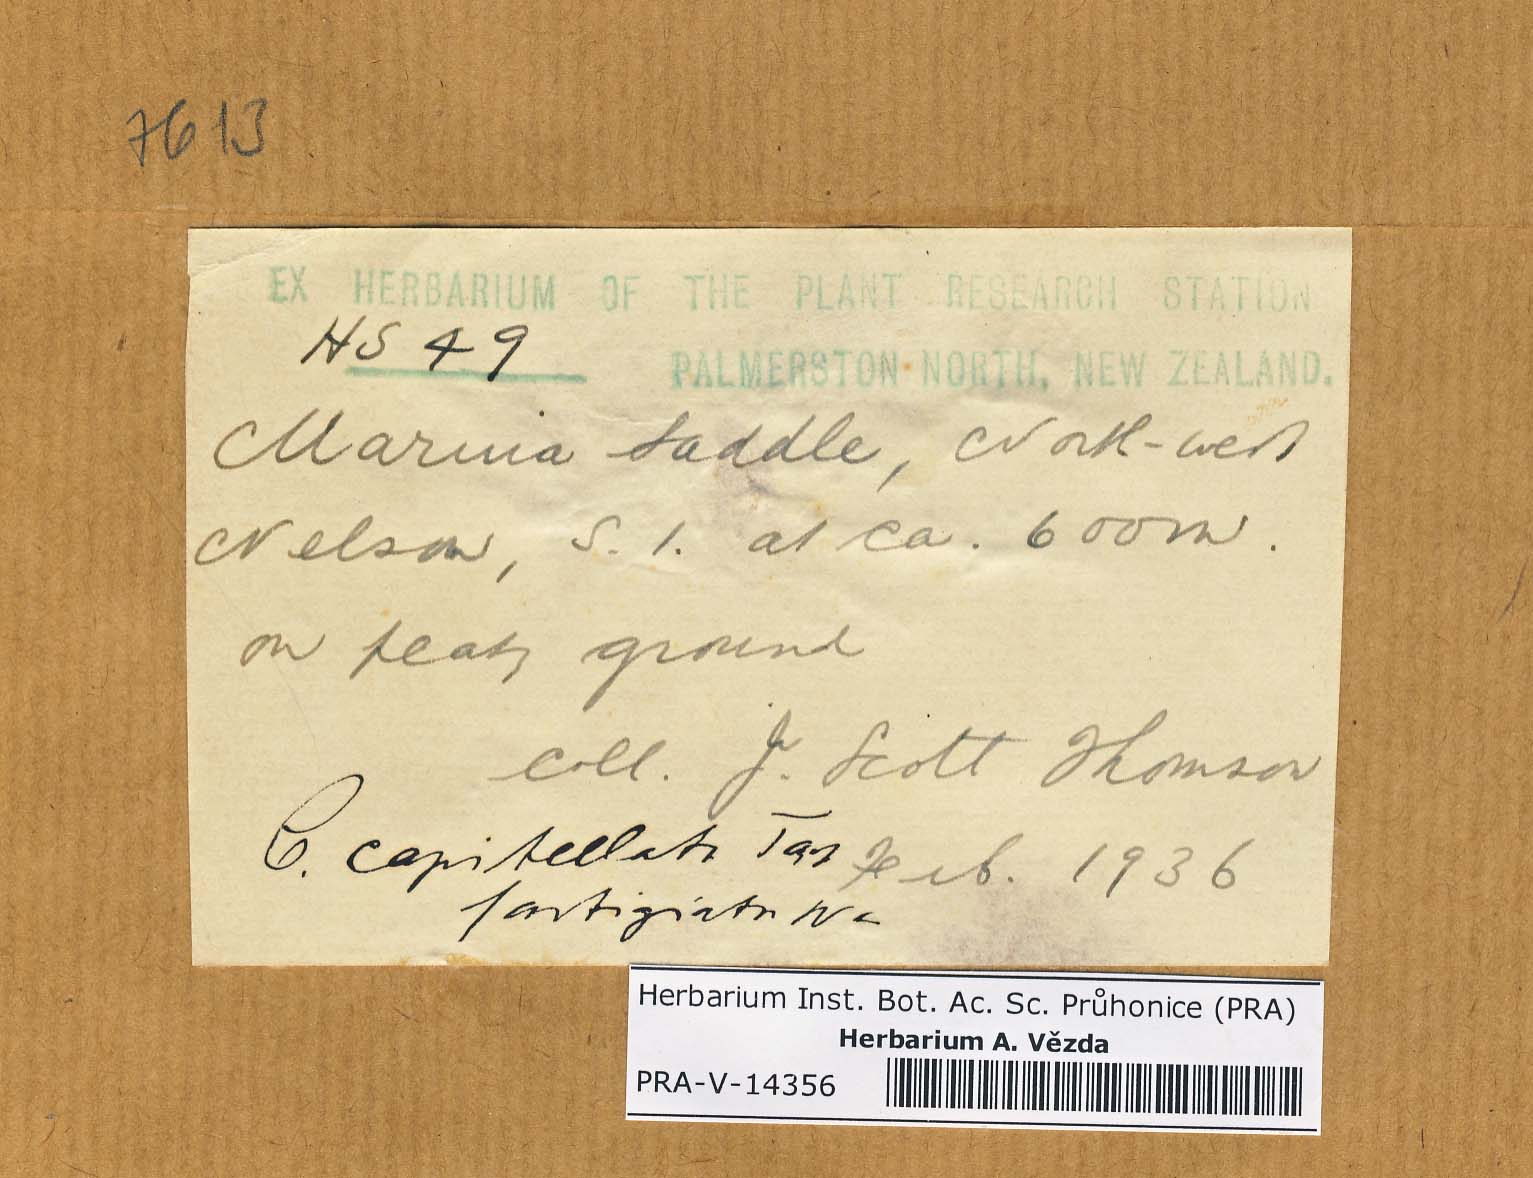 7613
EX HERBARIUM OF THE PLANT RESEARCH STATION
HS 49
PALMERSTON NORTH, NEW ZEALAND.
Saddle, North-west
Nelson, S.I. at ca. 600m.
on peaty ground
coll. J. Scott Thomson
C. capitellata
Feb. 1936
Herbarium Inst. Bot. Ac. Sc. Průhonice (PRA)
Herbarium A. Vězda
PRA-V-14356